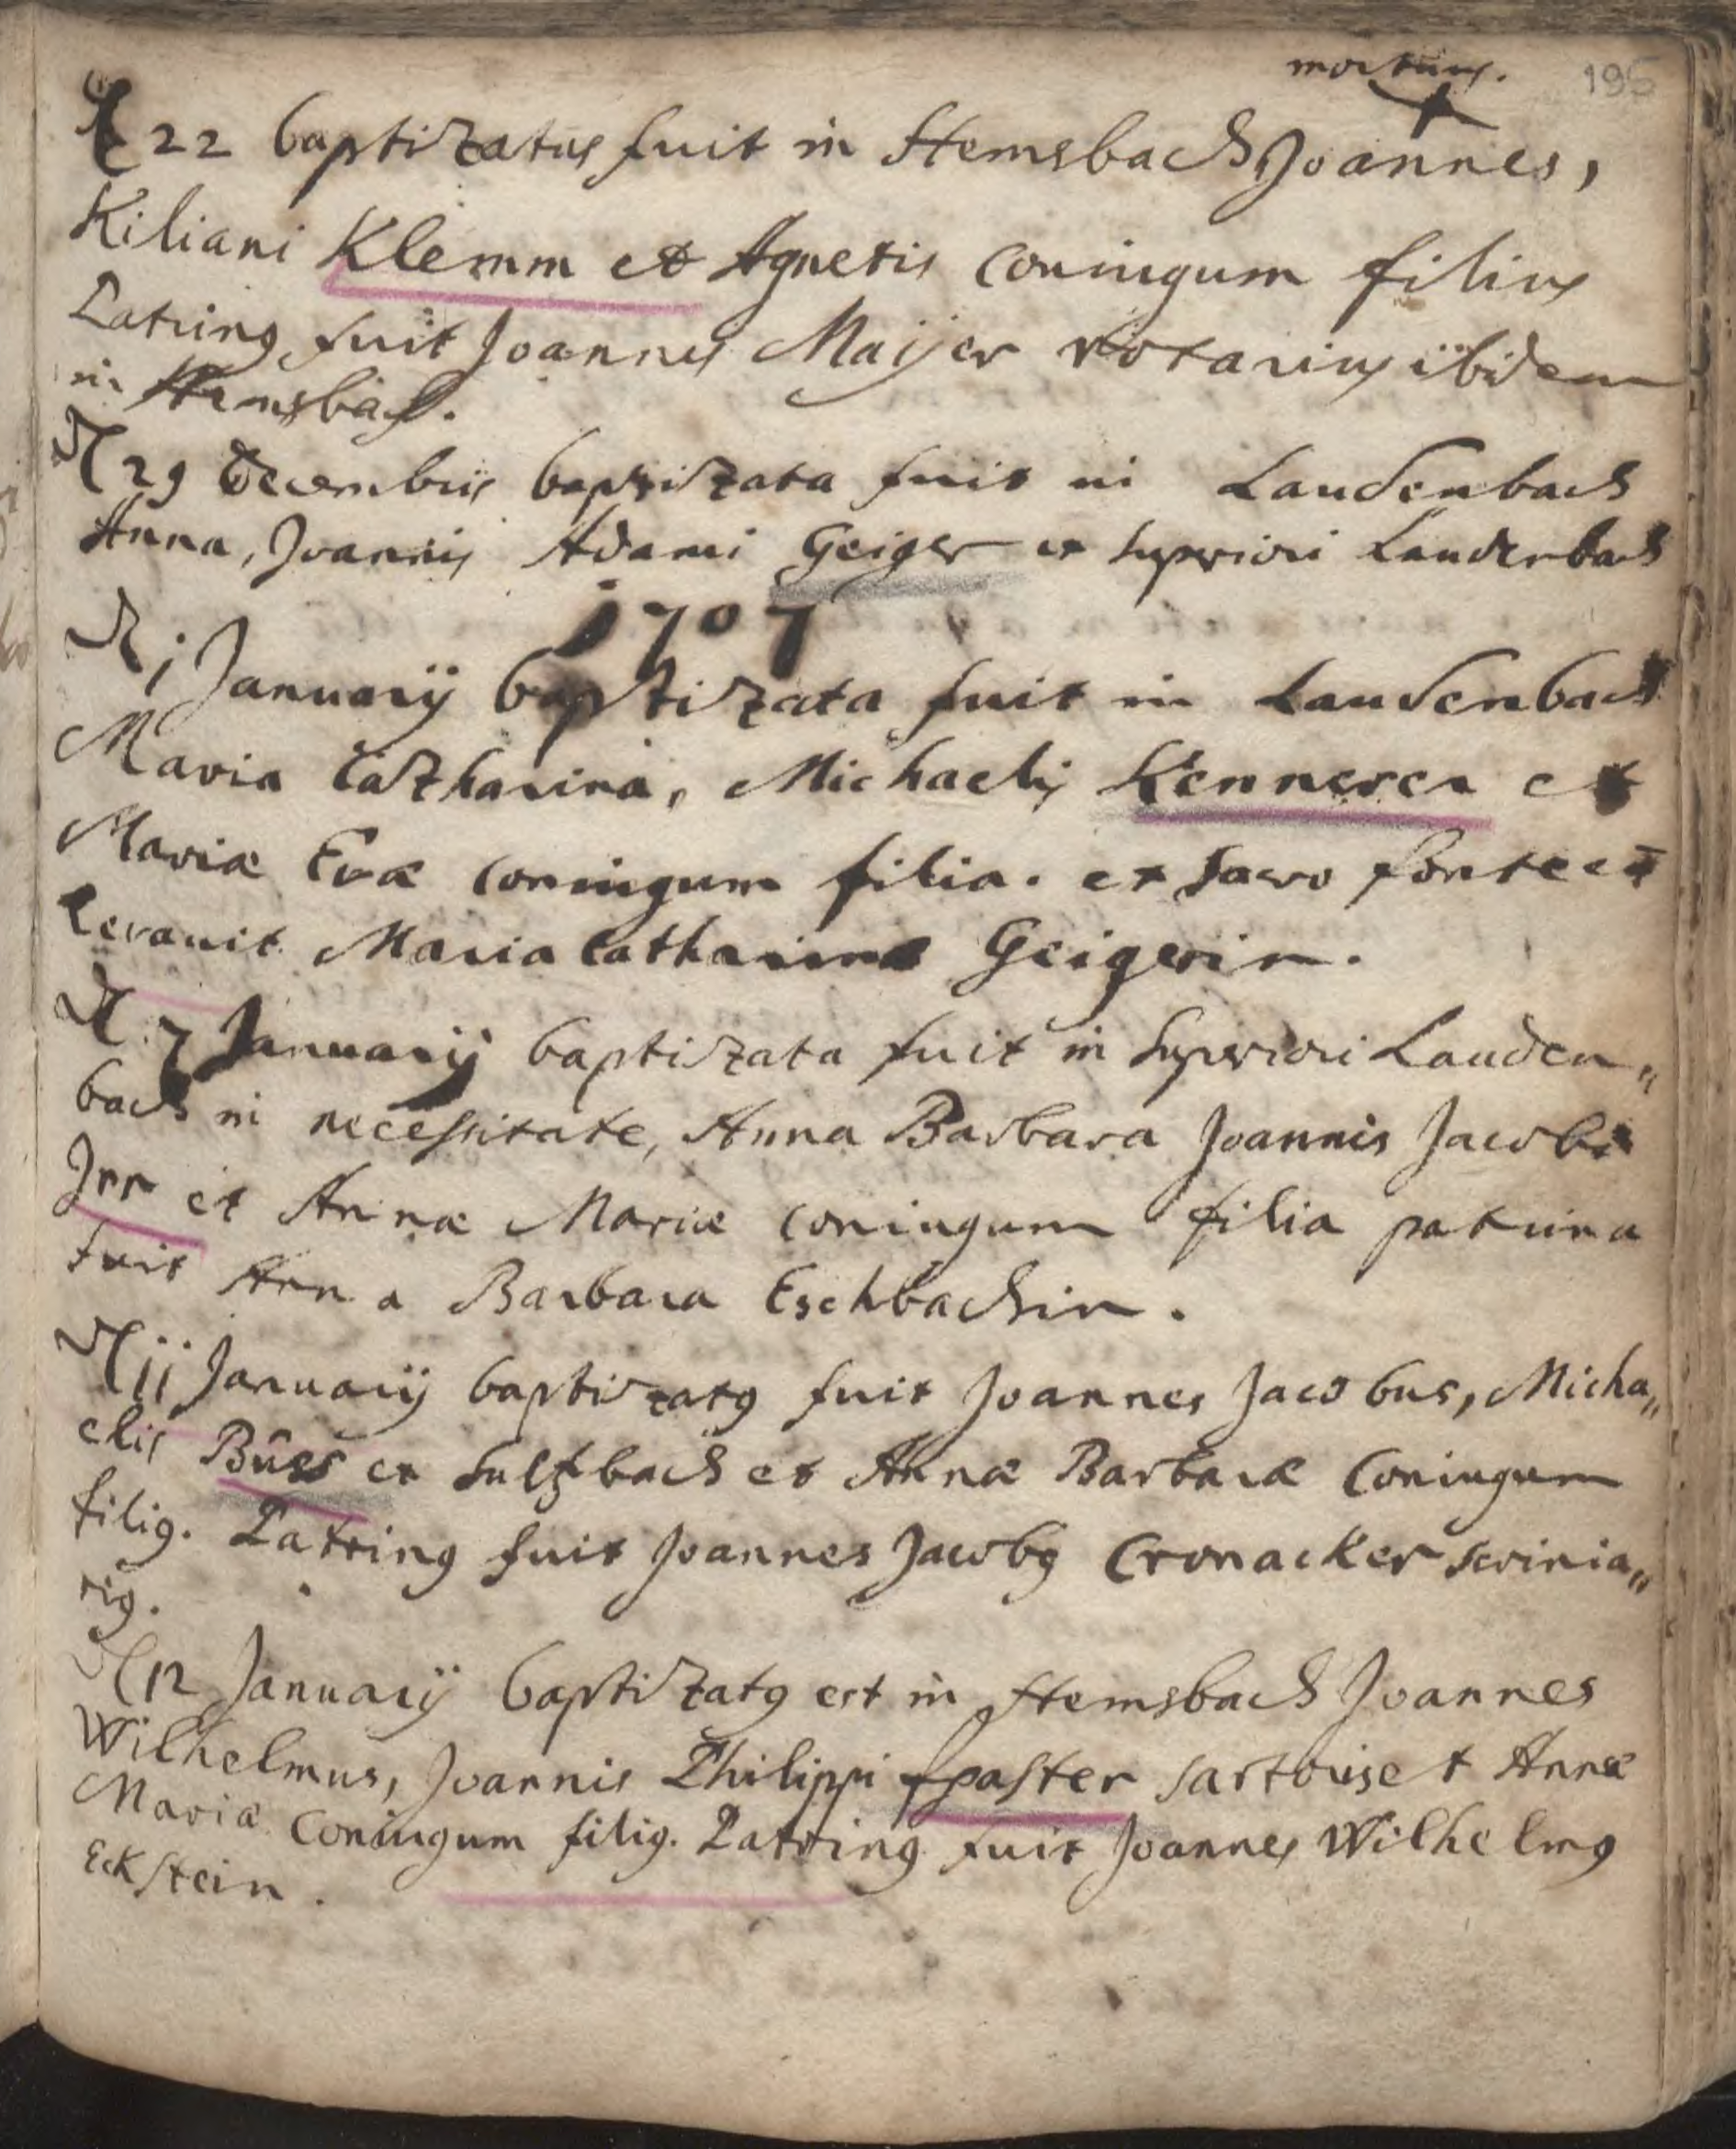 mortuus. 195
22 baptizatus fuit in Hemsbach Joannes,
Kiliani Klemm et Agnetis coniugum filius
Patrinus fuit Joannes Maijer notarius ibidem
in Hemsbach.
29 Decembris baptizata fuit in Laudenbach
Anna, Joannis Adami Geiger ex superiori Laudenbach
1707
1 Januarij baptizata fuit in Laudenbach
Maria Catharina, Michaelis Kennerer et
Mariæ Evæ coniugum filia. ex sacro fonte eā
levavit Maria Catharina Geigerin.
7 Januarij baptizata fuit in superiori Lauden„
bach in necessitate, Anna Barbara Joannis Jacobi
Jrr et Annæ Mariæ coniugum filia patrina
fuit Anna Barbara Eschbachin.
11 Januarij baptizatus fuit Joannes Jacobus, Micha„
elis Būss ex Sultzbach et Annæ Barbaræ Coniugum
filius. Patrinus fuit Joannes Jacobus Cronacker scrinia„
rius.
12 Januarij baptizatus est in Hemsbach Joannes
Wilhelmus, Joannis Philippi paster sartoris et Annæ
Mariæ Coniugum filius. Patrinus fuit Joannes Wilhelmus
Eckstein.